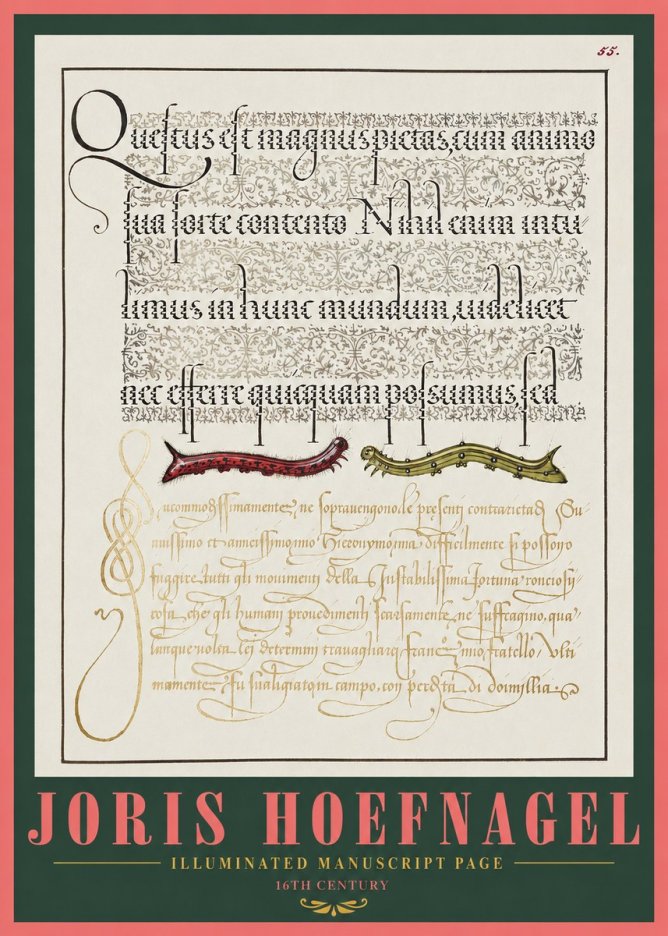 55.
Questus est magnus pietas, cum animo
sua sorte contento Nihil enim intu⸗
limus in hunc mundum, uidelicet
nec efferre quicquam possumus, sed
ne sopravengono, le presenti contrarietadi Su⸗
difficilmente si possono
fuggire tutti gli movimenti della Instabilissima fortuna
cosa che gli humani provedimenti scarsamente ne suffragino, qua⸗
lunque volta, lei determini travagliarci mio fratello Ulti⸗
mamente fu in campo, con perdita di doimillia.
JORIS HOEFNAGEL
ILLUMINATED MANUSCRIPT PAGE
16TH CENTURY